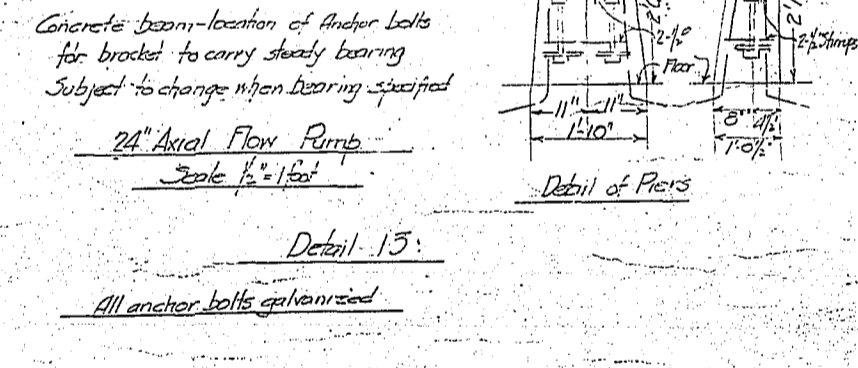 Concrete beam-location of Anchor bolts
for bracket to carry steady bearing
Subject to change when bearing specified
24" Axial Flow Pump
Scale 1½"=1 foot
Detail 15:
All anchor bolts galvanized
2-½"
Floor
11" 11"
1'-10"
2-½" Stirrups
8" 4½"
1'-0½"
Detail of Piers